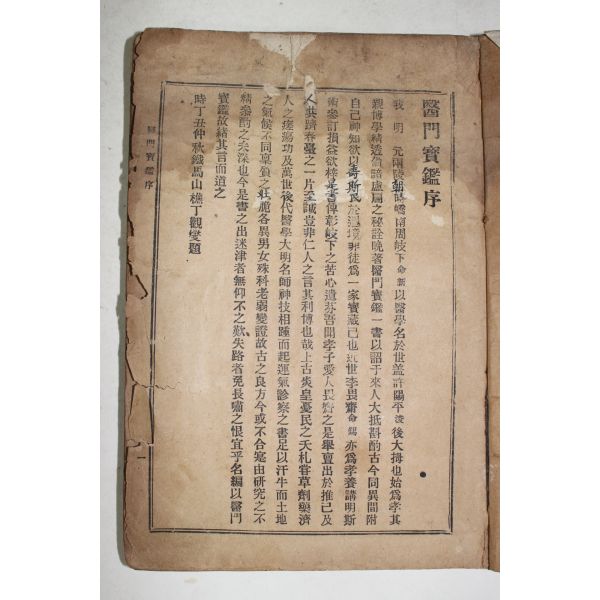 醫門寶鑑序
我 明 元兩陵朝時嶠南周岐下命新以醫學名於世盖許陽平浚後大拇也始爲孝其
親博學精透倉諳盧扁之秘詮晩著醫門寶鑑一書以詔于來人大抵斟酌古今同異間附
自己神知欲以壽斯民於 非徒爲一家寶藏己也近世李畏齋命錫亦爲孝養講明斯
術參訂損益欲梓是書俾彰岐下之苦心遺芬吾聞孝子愛人畏齋之是擧亶出於推己及
人共躋春臺之一片至誠豈非仁人之言其利博也哉上古炎皇憂民之夭札甞草劑藥濟
人之瘥瘍功及萬世後代醫學大明名師神技相踵而起運氣診察之書足以汗牛而土地
之氣候不同稟賦之壯脆各異男女殊科老弱變證故古之良方今或不合寔由研究之不
精參酌之失深也今是書之出迷津者無仰不之歎失路者免長嘯之恨宜乎名編以醫門
寶鑑故緖其言而道之
時丁丑仲秋鐵馬山樵丁觀燮題
醫門寶鑑序
一